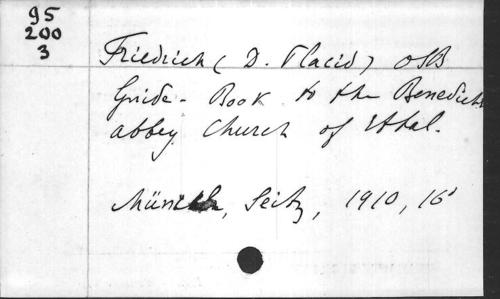 95
200
3
Friedrich (D. Placid) OSB
Guide-Book to the Benedict
abbey Church of Ettal.
Münich, Seitz, 1910, 16°